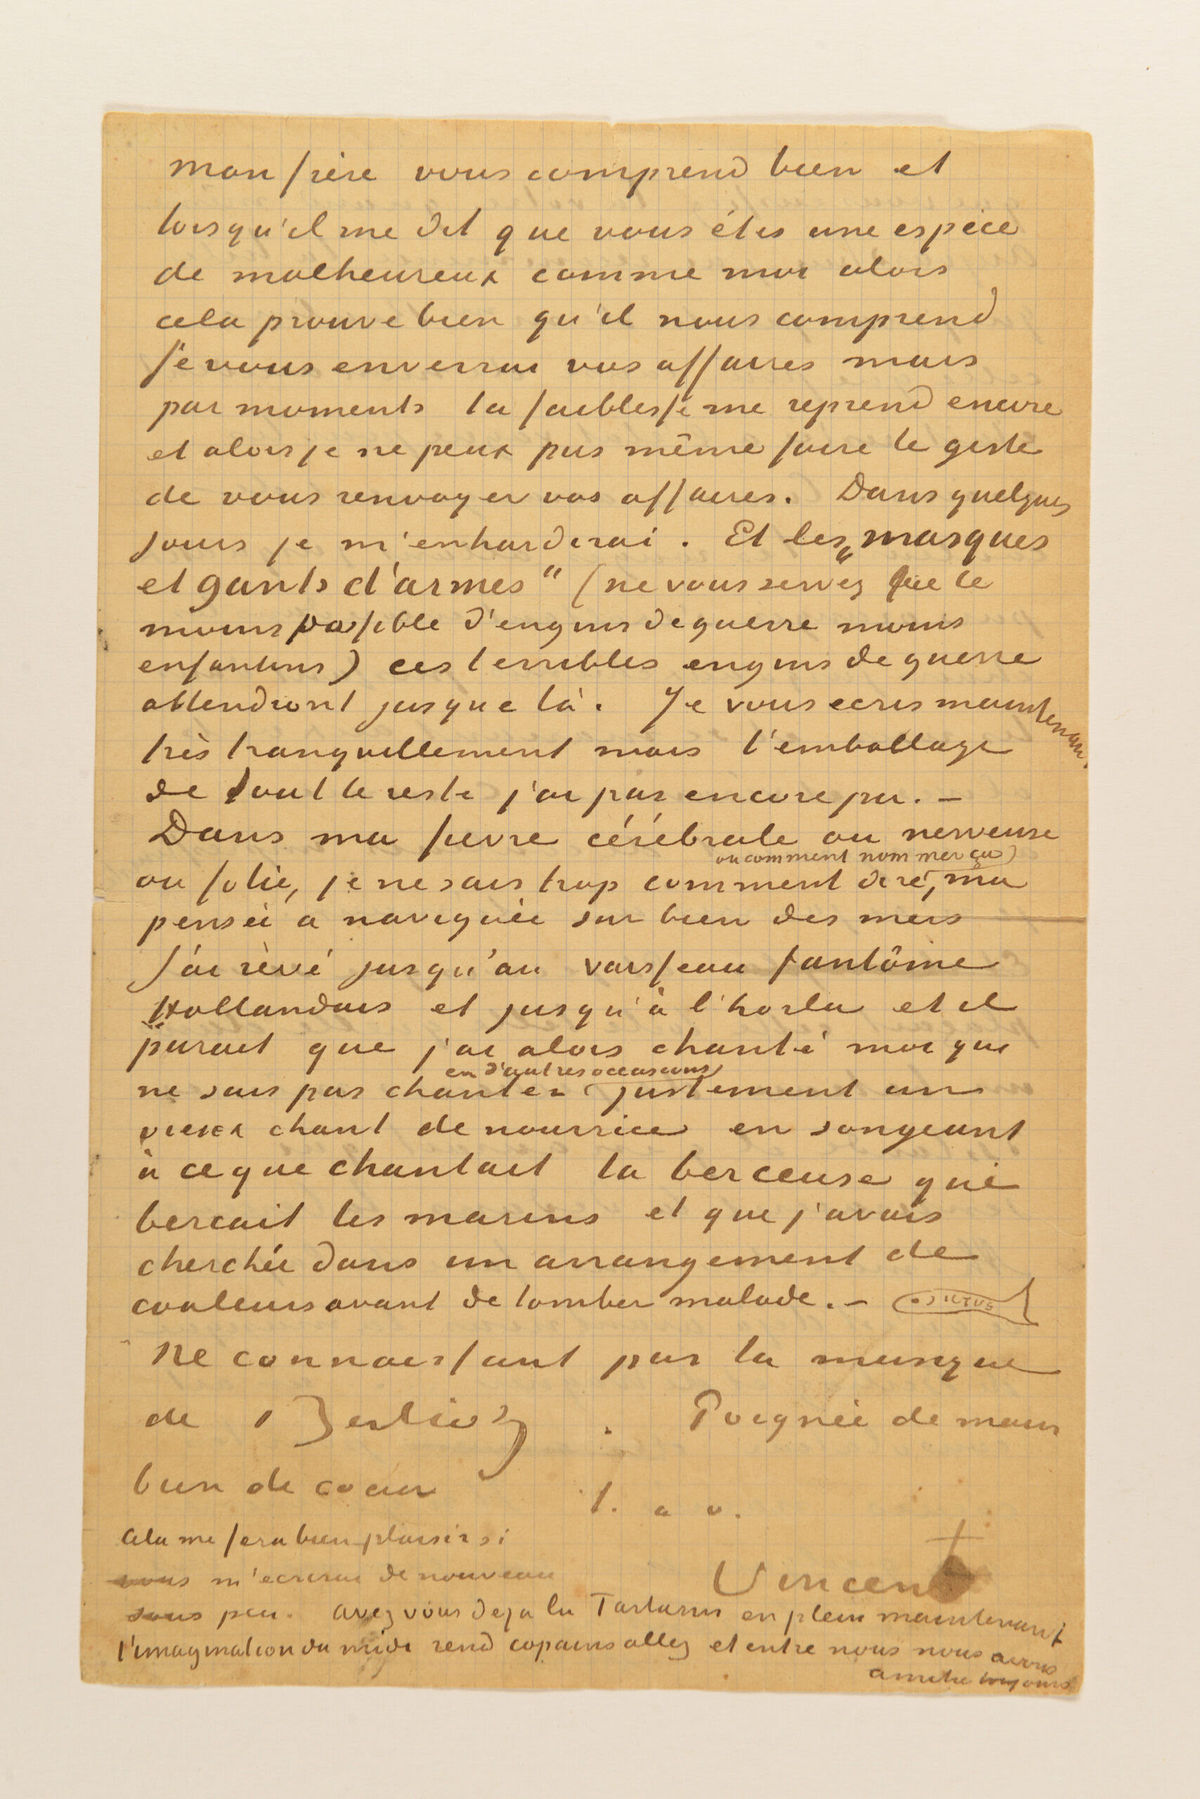 mon frère vous comprend bien et
lorsqu'il me dit que vous étes une espèce
de malheureux comme moi alors
cela prouve bien qu'il nous comprend
Je vous enverrai vos affaires mais
par moments la faiblesse me reprend encore
et alors je ne peux pas même faire le geste
de vous renvoyer vos affaires. Dans quelques
jours je m'enhardirai. Et les „masques
et gants d'armes" (ne vous servez que le
moins possible d'engins de guerre moins
enfantins) ces terribles engins de guerre
attendront jusque là. Je vous ecris maintenant
très tranquillement mais l'emballage
de tout le reste j'ai pas encore pu. –
Dans ma fievre cérébrale ou nerveuse
ou comment nommer ça)
ou folie, je ne sais trop comment dire, ma
pensée a naviguée sur bien des mers
J'ai rèvé jusqu'au vaisseau fantôme
Hollandais et jusqu'à l'horla et il
parait que j'ai alors chanté moi qui
en d'autres occasions
ne sais pas chanter justement un
vieux chant de nourrice en songeant
à ce que chantait la berceuse qui
bercait les marins et que j'avais
cherchée dans un arrangement de
couleurs avant de tomber malade. –
Ne connaissant pas la musique
de Berlioz. Poignée de main
bien de coeur
t. a v.
Vincent
Cela me fera bien plaisir si
vous m'ecrirai de nouveau
sous peu. avez vous deja lu Tartarin en plein maintenant
l'imagination du midi rend copains allez et entre nous nous avons
amitie toujours